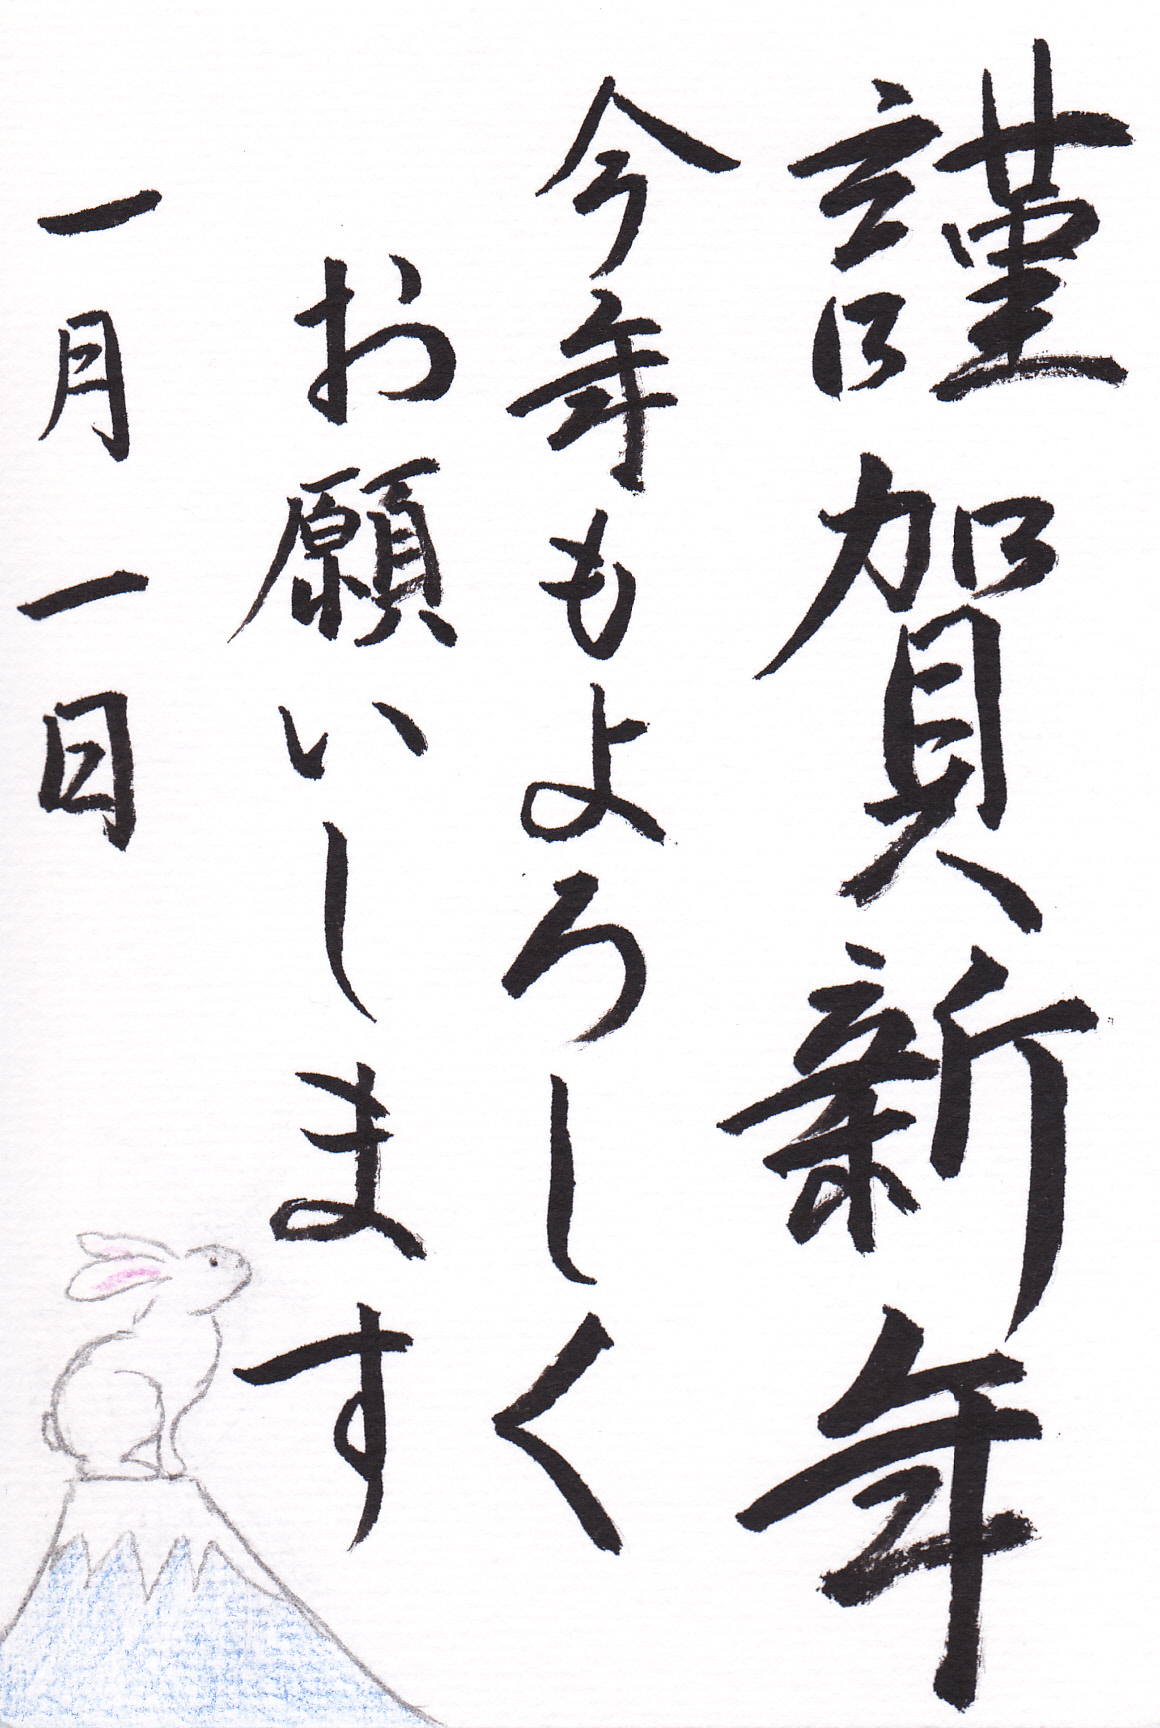 謹賀新年
今年もよろしく
お願いします
一月一日